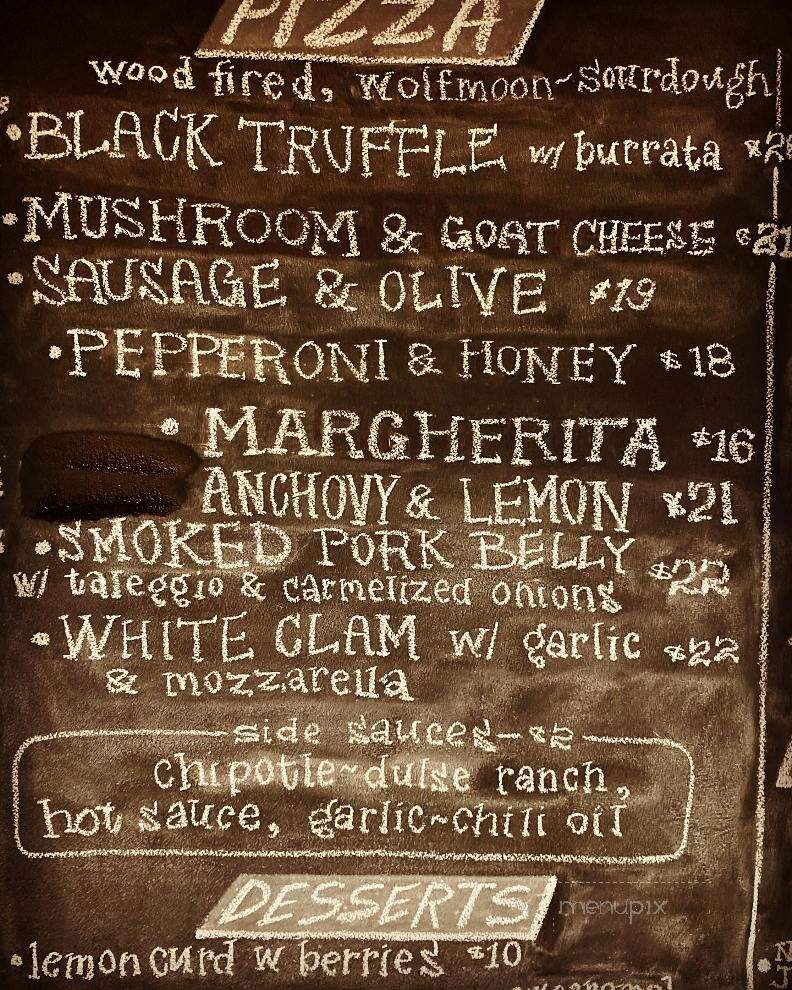 PIZZA
wood fired, wolfmoon~sourdough
•BLACK TRUFFLE w/ burrata
•MUSHROOM & GOAT CHEESE $21
•SAUSAGE & OLIVE $19
•PEPPERONI & HONEY $18
•MARGHERITA $16
ANCHOVY & LEMON $21
•SMOKED PORK BELLY $22
w/ taleggio & carmelized onions
•WHITE CLAM w/ garlic $22
& mozzarella
side sauces-$2
chipotle~dulse ranch,
hot sauce, garlic~chili oil
DESSERTS
menupix
•lemon curd w berries $10